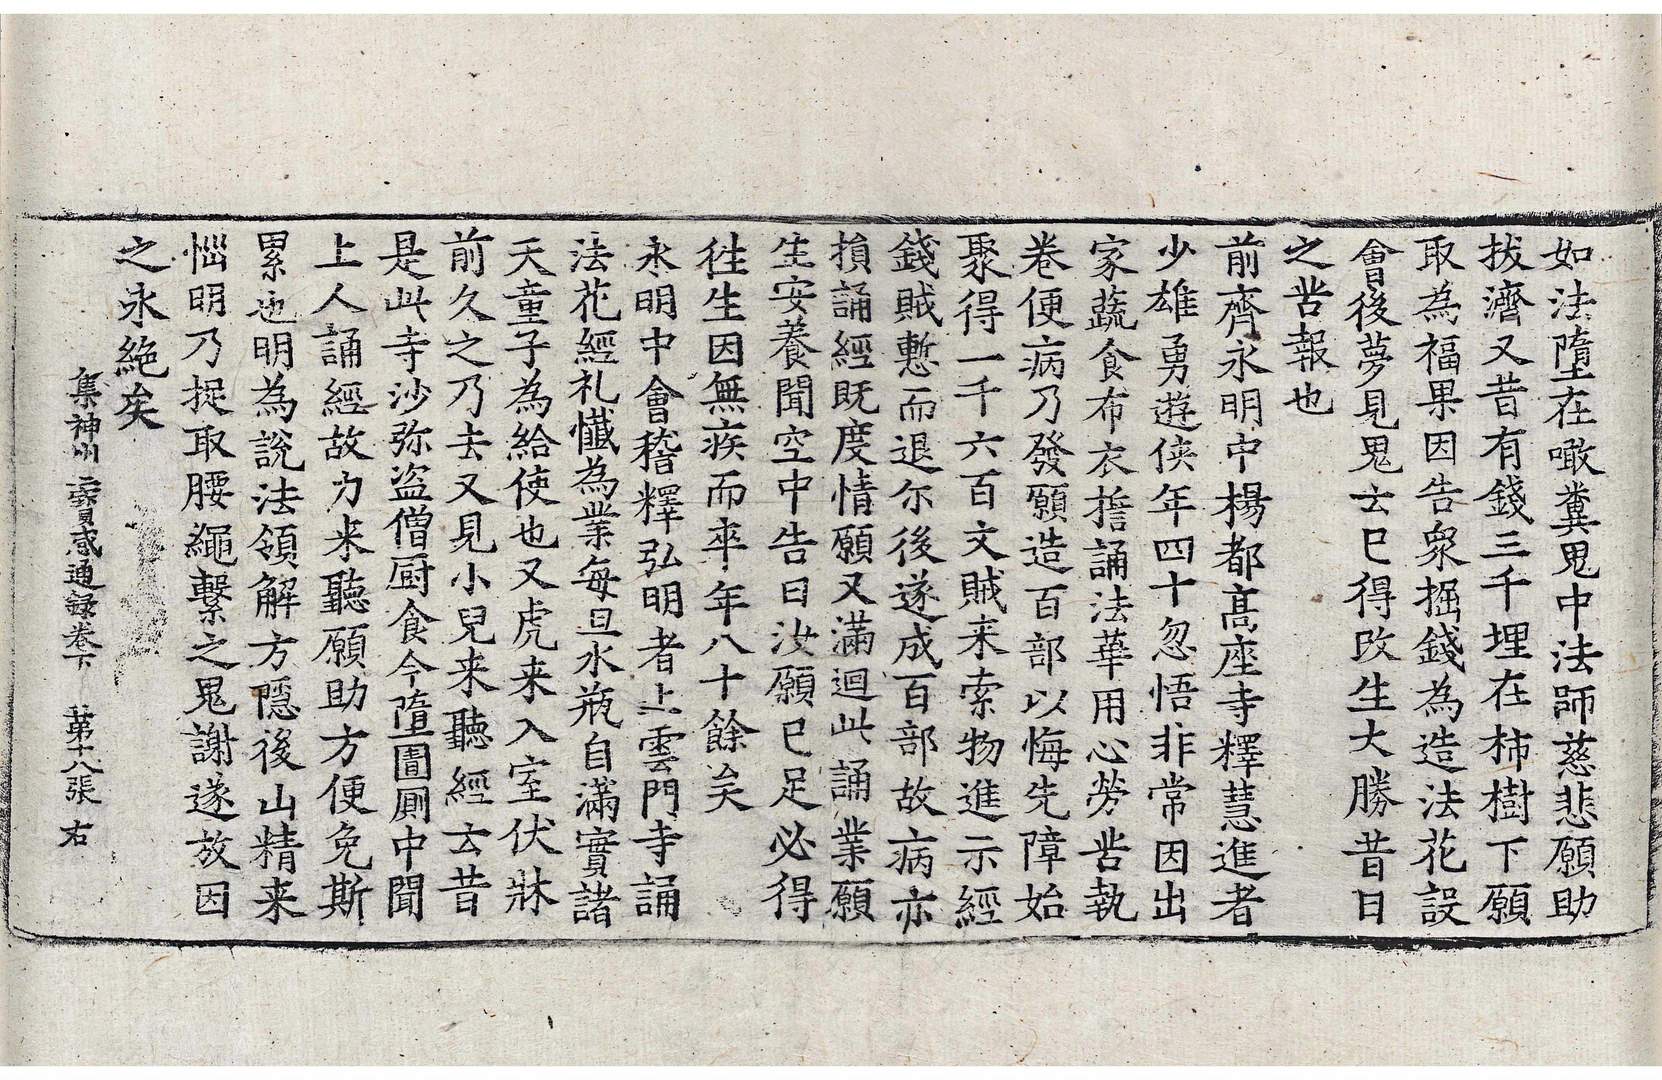 如法墮在噉糞鬼中法師慈悲願助
拔濟又昔有錢三千埋在柿樹下願
取為福果因告衆掘錢為造法花設
會後夢見鬼云已得改生大勝昔日
之苦報也
前齊永明中楊都高座寺釋慧進者
少雄勇遊俠年四十忽悟非常因出
家蔬食布衣擔誦法華用心勞苦執
卷便病乃發願造百部以悔先障始
聚得一千六百文賊来索物進示經
錢賊慙而退尒後遂成百部故病亦
損誦經既度情願又滿迴此誦業願
生安養聞空中告曰汝願已足必得
徃生因無疾而卒年八十餘矣
永明中會稽釋弘明者止雲門寺誦
法花經礼懺為業每旦水瓶自滿實諸
天童子為給使也又虎来入室伏牀
前久之乃去又見小兒来聽經云昔
是此寺沙弥盜僧厨食今墮圊厠中聞
上人誦經故力来聽願助方便免斯
累也明為說法領解方隱後山精来
惱明乃捉取腰繩繫之鬼謝遂放因
之永絕矣
集神州三寶感通録卷下 第十八張 右